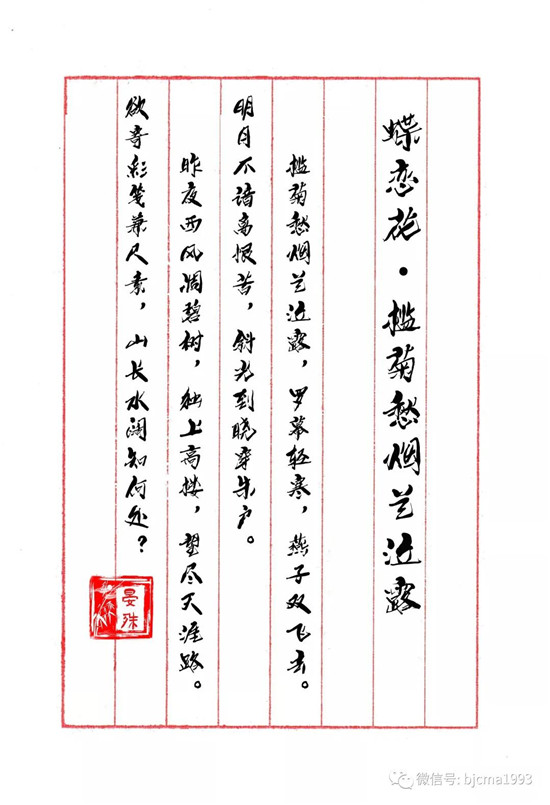 蝶恋花·槛菊愁烟兰泣露
槛菊愁烟兰泣露，罗幕轻寒，燕子双飞去。
明月不谙离恨苦，斜光到晓穿朱户。
昨夜西风凋碧树，独上高楼，望尽天涯路。
欲寄彩笺兼尺素，山长水阔知何处？
晏殊
微信号: bjcma1993